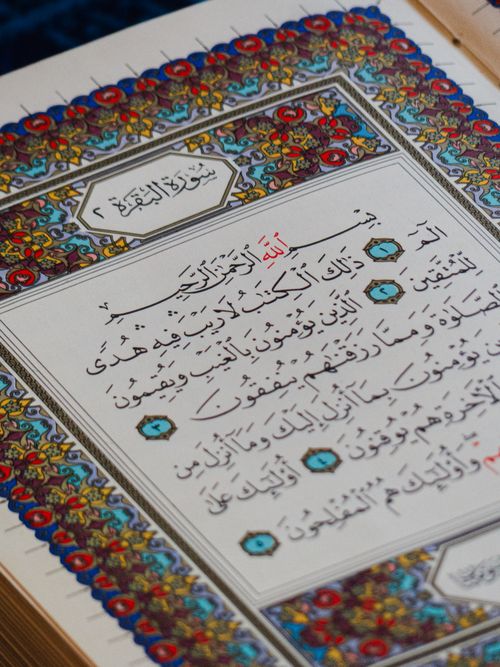 سُورَةُ الْبَقَرَةِ ٢
بِسْمِ اللَّهِ الرَّحْمَٰنِ الرَّحِيمِ
الٓمٓ ١ ذَٰلِكَ الْكِتَٰبُ لَا رَيْبَ فِيهِ هُدًى
لِلْمُتَّقِينَ ٢ الَّذِينَ يُؤْمِنُونَ بِالْغَيْبِ وَيُقِيمُونَ
الصَّلَوٰةَ وَمِمَّا رَزَقْنَٰهُمْ يُنْفِقُونَ ٣
يُؤْمِنُونَ بِمَا أُنْزِلَ إِلَيْكَ وَمَا أُنْزِلَ مِنْ
وَبِالْآخِرَةِ هُمْ يُوقِنُونَ ٤ أُولَٰئِكَ عَلَىٰ
وَأُولَٰئِكَ هُمُ الْمُفْلِحُونَ ٥